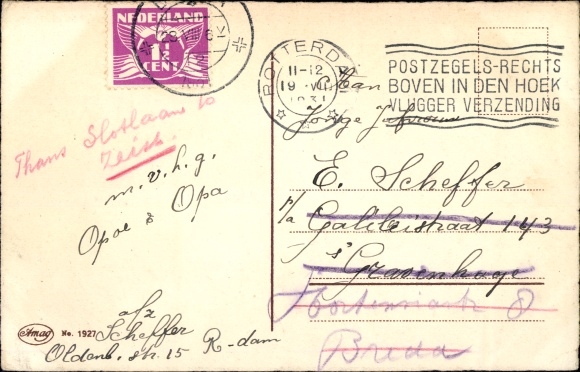 NEDERLAND
1½
CENT
ROTTERDAM
11-12
19 VII
1931
POSTZEGELS-RECHTS
BOVEN IN DEN HOEK
VLUGGER VERZENDING
Thans Slotlaan 10
Zeist.
m. v. h. g.
Opoe & Opa
a/z
Scheffer
Oldenb. str. 15 R-dam
Amag No. 1927
Aan
Jonge Juffrouw
E. Scheffer
p/a Galileistraat 143
s' Gravenhage
8
Breda